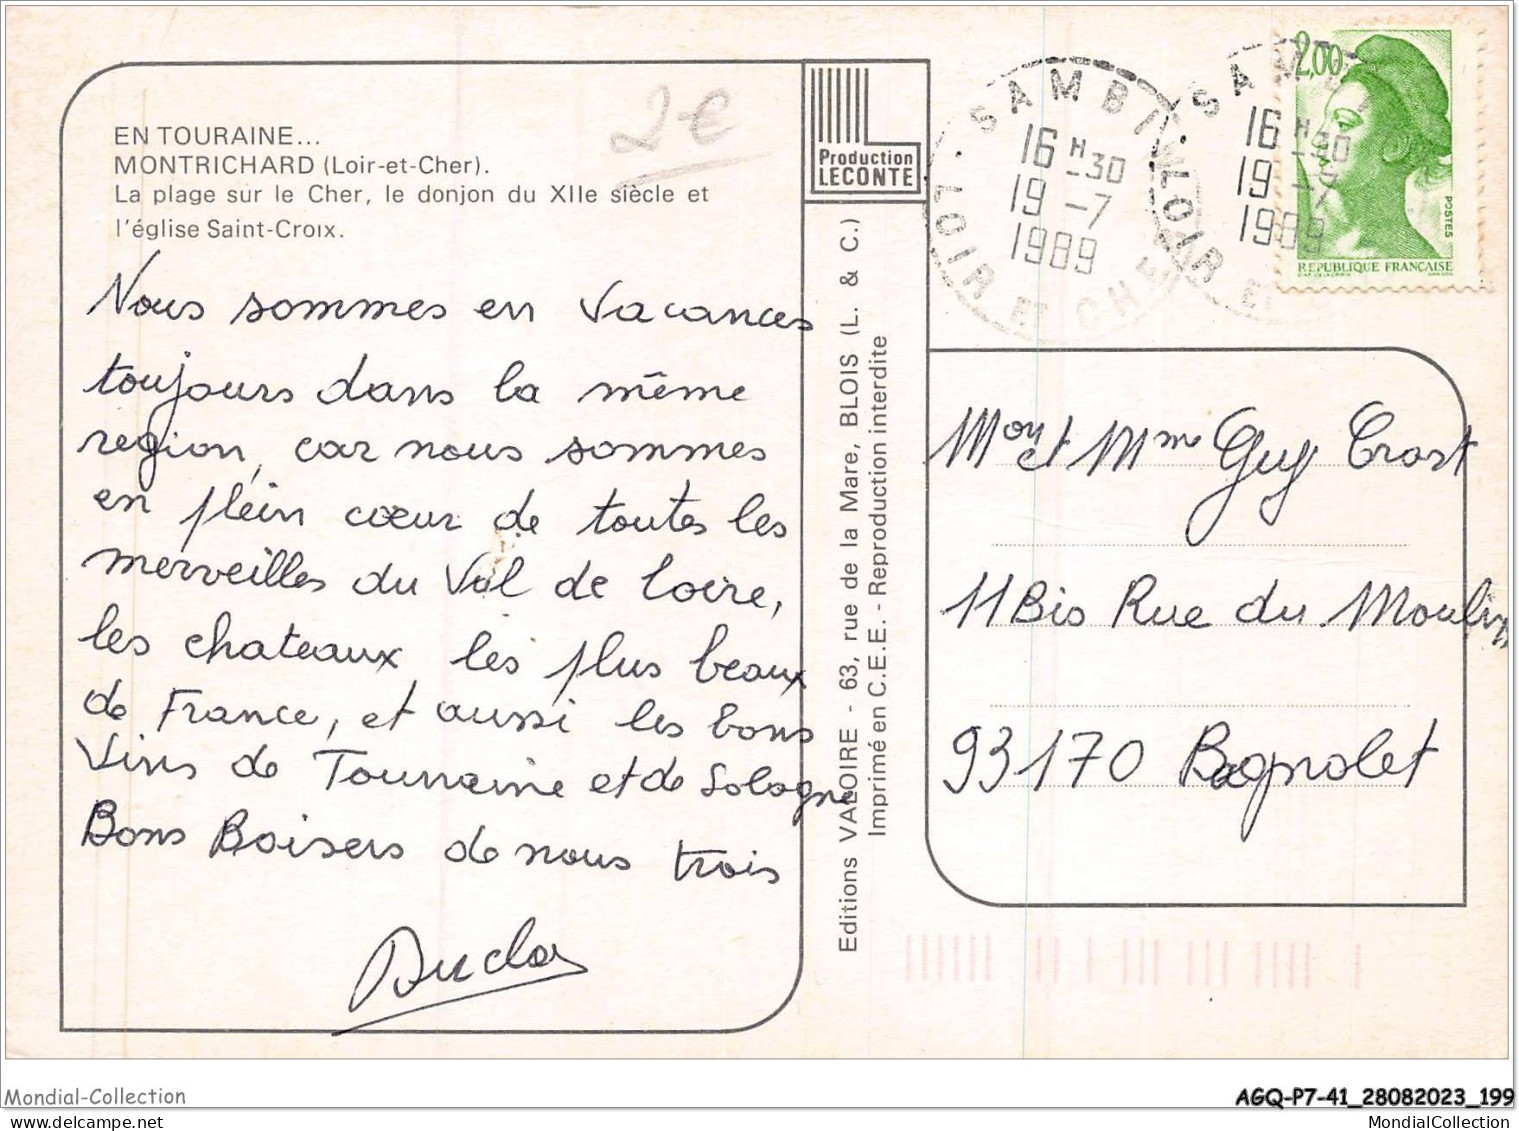 EN TOURAINE...
MONTRICHARD (Loir-et-Cher).
La plage sur le Cher, le donjon du XIIe siècle et
l'église Saint-Croix.
2€
Nous sommes en vacances
toujours dans la même
region, car nous sommes
en plein cœur de toutes les
merveilles du Val de Loire,
les chateaux les plus beaux
de France, et aussi les bons
Vins de Tourraine et de Sologne
Bons Baisers de nous trois
Duclos
Production
LECONTE
Editions VALOIRE - 63, rue de la Mare, BLOIS (L. & C.)
Imprimé en C.E.E. - Reproduction interdite
SAMBI
16 H 30
19 -7
1989
LOIR ET CHER
SAMBI
16 H 30
19 -7
1989
LOIR ET
2,00
POSTES
REPUBLIQUE FRANÇAISE
Mon et Mme Guy Crost
11 Bis Rue du Moulin
93170 Bagnolet
Mondial-Collection
AGQ-P7-41_28082023_199
MondialCollection